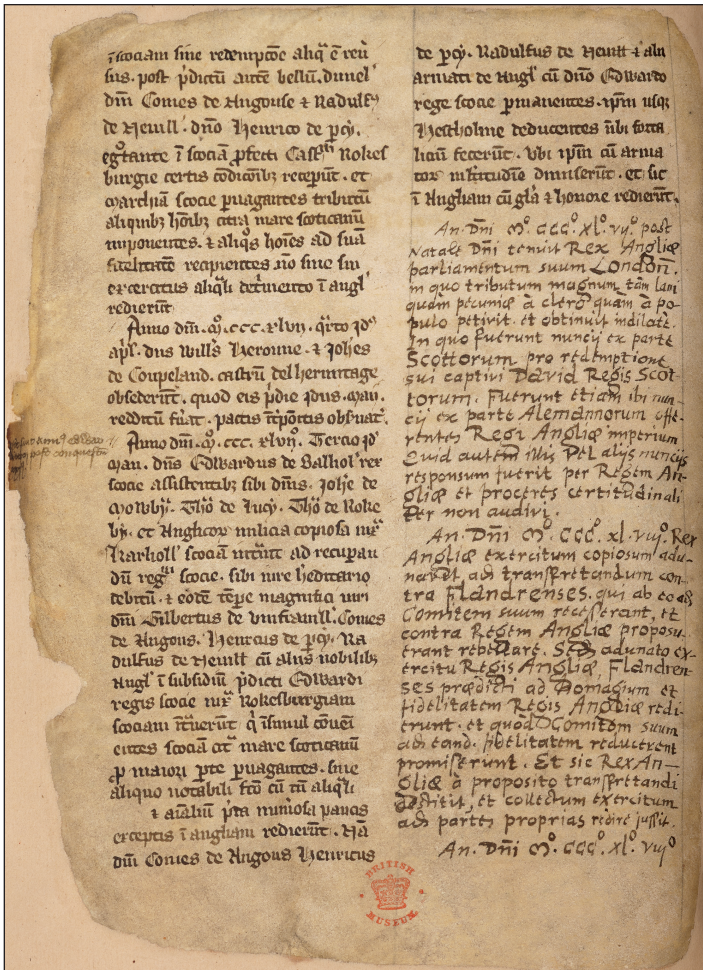 ī scociam sine redempcōe aliq̄ ē reū
sus. post p̄dictū autē bellū. dunel̄
dn̄i Comes de Angouse & Radulf9
de Nevill. dn̄o Henrico de p̄cy.
eg̊tante ī scociā p̄fecti Castr̄ Rokes
burgie certis cōdicōib3 recepūt. et
marchiā scocie puagantes tributū
aliquib3 hōib3 citra mare scoticanū
imponentes. & aliq̊s hoīes ad suā
fidelitatē recipientes. nō sine sui
exercitus aliq̄li det̄mento ī angl̄
redierūt
Anno dn̄i. m̊. ccc. xlvii. q̄rto id9
apl̄. dn̄s Will̄s Heronne. & Joh̄es
de Coupeland. castrū del hermitage
obsederūt. quod eis p̄die idus. maii.
redditū fuāt. pactis
Anno dn̄i. m̊. ccc. xlvii. Tercio id9
maii. dn̄s Edwardus de Balliol rex
scocie assistentib3 sibi dn̄is. Joh̄e de
mowb̄y. Thō de Lucy. Thō de Roke
by. et Anglicor milicia copiosa iux̄
Karlioll̄ scociā int̄uit ad recuperan
dū regnū scocie. sibi iure h̄editario
debitū. & eodē tēpe magnifici viri
dn̄i Gilbertus de vmfraivill. Comes
de Angous. Henricus de p̄cy. Ra
dulfus de Nevill cū aliis nobilib3
Angl̄ ī subsidiū p̄dicti Edwardi
regis scocie iux̄ Rokesburgiam
scociam īt̄uerūt q̄ īsimul cōueī
entes scociā cit̄ mare scoticanū
p maiori p̄te puagantes. sine
aliquo notabili fc̄o cū aliq̄li
& aīaliū p̄da nūosa paucis
exceptis ī angliam redierūt. Nā
dn̄i Comes de Angous Henricus
de p̄cy. Radulfus de Nevill & alii
armati de Angl̄ cū dn̄o Edwardo
rege scocie p̄manentes. ip̄m usq̄
Hestholme deducentes ubi forta
liciū fecerūt. Vbi ip̄m cū arma
tor multitudīe dimiserūt. et sic
ī Angliam cū gl̄a & honore redierūt.
An. Dn̄i M̊. CCC̊. XL̊. vij̊. post
Natale Dn̄i tenuit Rex Angliæ
parliamentum suum London.
in quo tributum magnum tàm lani
quàm pecuniæ à clero quàm à po
pulo petivit. et obtinuit indilatè.
In quo fuerunt nuncij ex parte
Scottorum pro redemptione
sui captivi David Regis Scot-
torum. Fuerunt etiam ibi nun-
cij ex parte Alemannorum offe-
rentes Regi Angliæ imperium
Quid autem illis vel alijs nuncijs
responsum fuerit per Regem An-
gliæ et proceres certitudinali
ter non audivi.
An. Dn̄i M̊. CCC̊. xl. vij̊. Rex
Angliæ exercitum copiosum adu-
navit, ad transfretandum con-
tra Flandrenses, qui ab eo ad
Comitem suum recesserant, et
contra Regem Angliæ proposu-
erant rebellare. Sed adunato ex-
ercitu Regis Angliæ, Flandren-
ses prædicti ad Homagium et
fidelitatem Regis Angliæ redi-
erunt. et quod Comitem suum
ad eand. fidelitatem reducerent
promiserunt. Et sic Rex An-
gliæ à proposito transfretandi
destitit, et collectum exercitum
ad partes proprias redire jussit.
An. Dn̄i M̊. CCC̊. XL̊. vij̊
BRITISH
MUSEUM